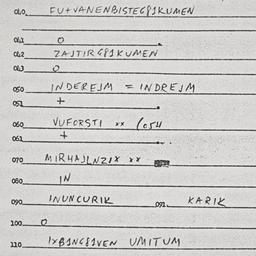 040. FU+VANENBISTEG81KUMEN
041. O
042. ZAJTIRG81KUMEN
043. O
050. INDEREJM = INDREJM
051. +
060. VUFORSTI ** (054
061. +
070. MIRHAJLNZIX **
080. IN
090. INUNCURIK 091. KARIK
100. O
110. IXBINC81VEN UMITUM